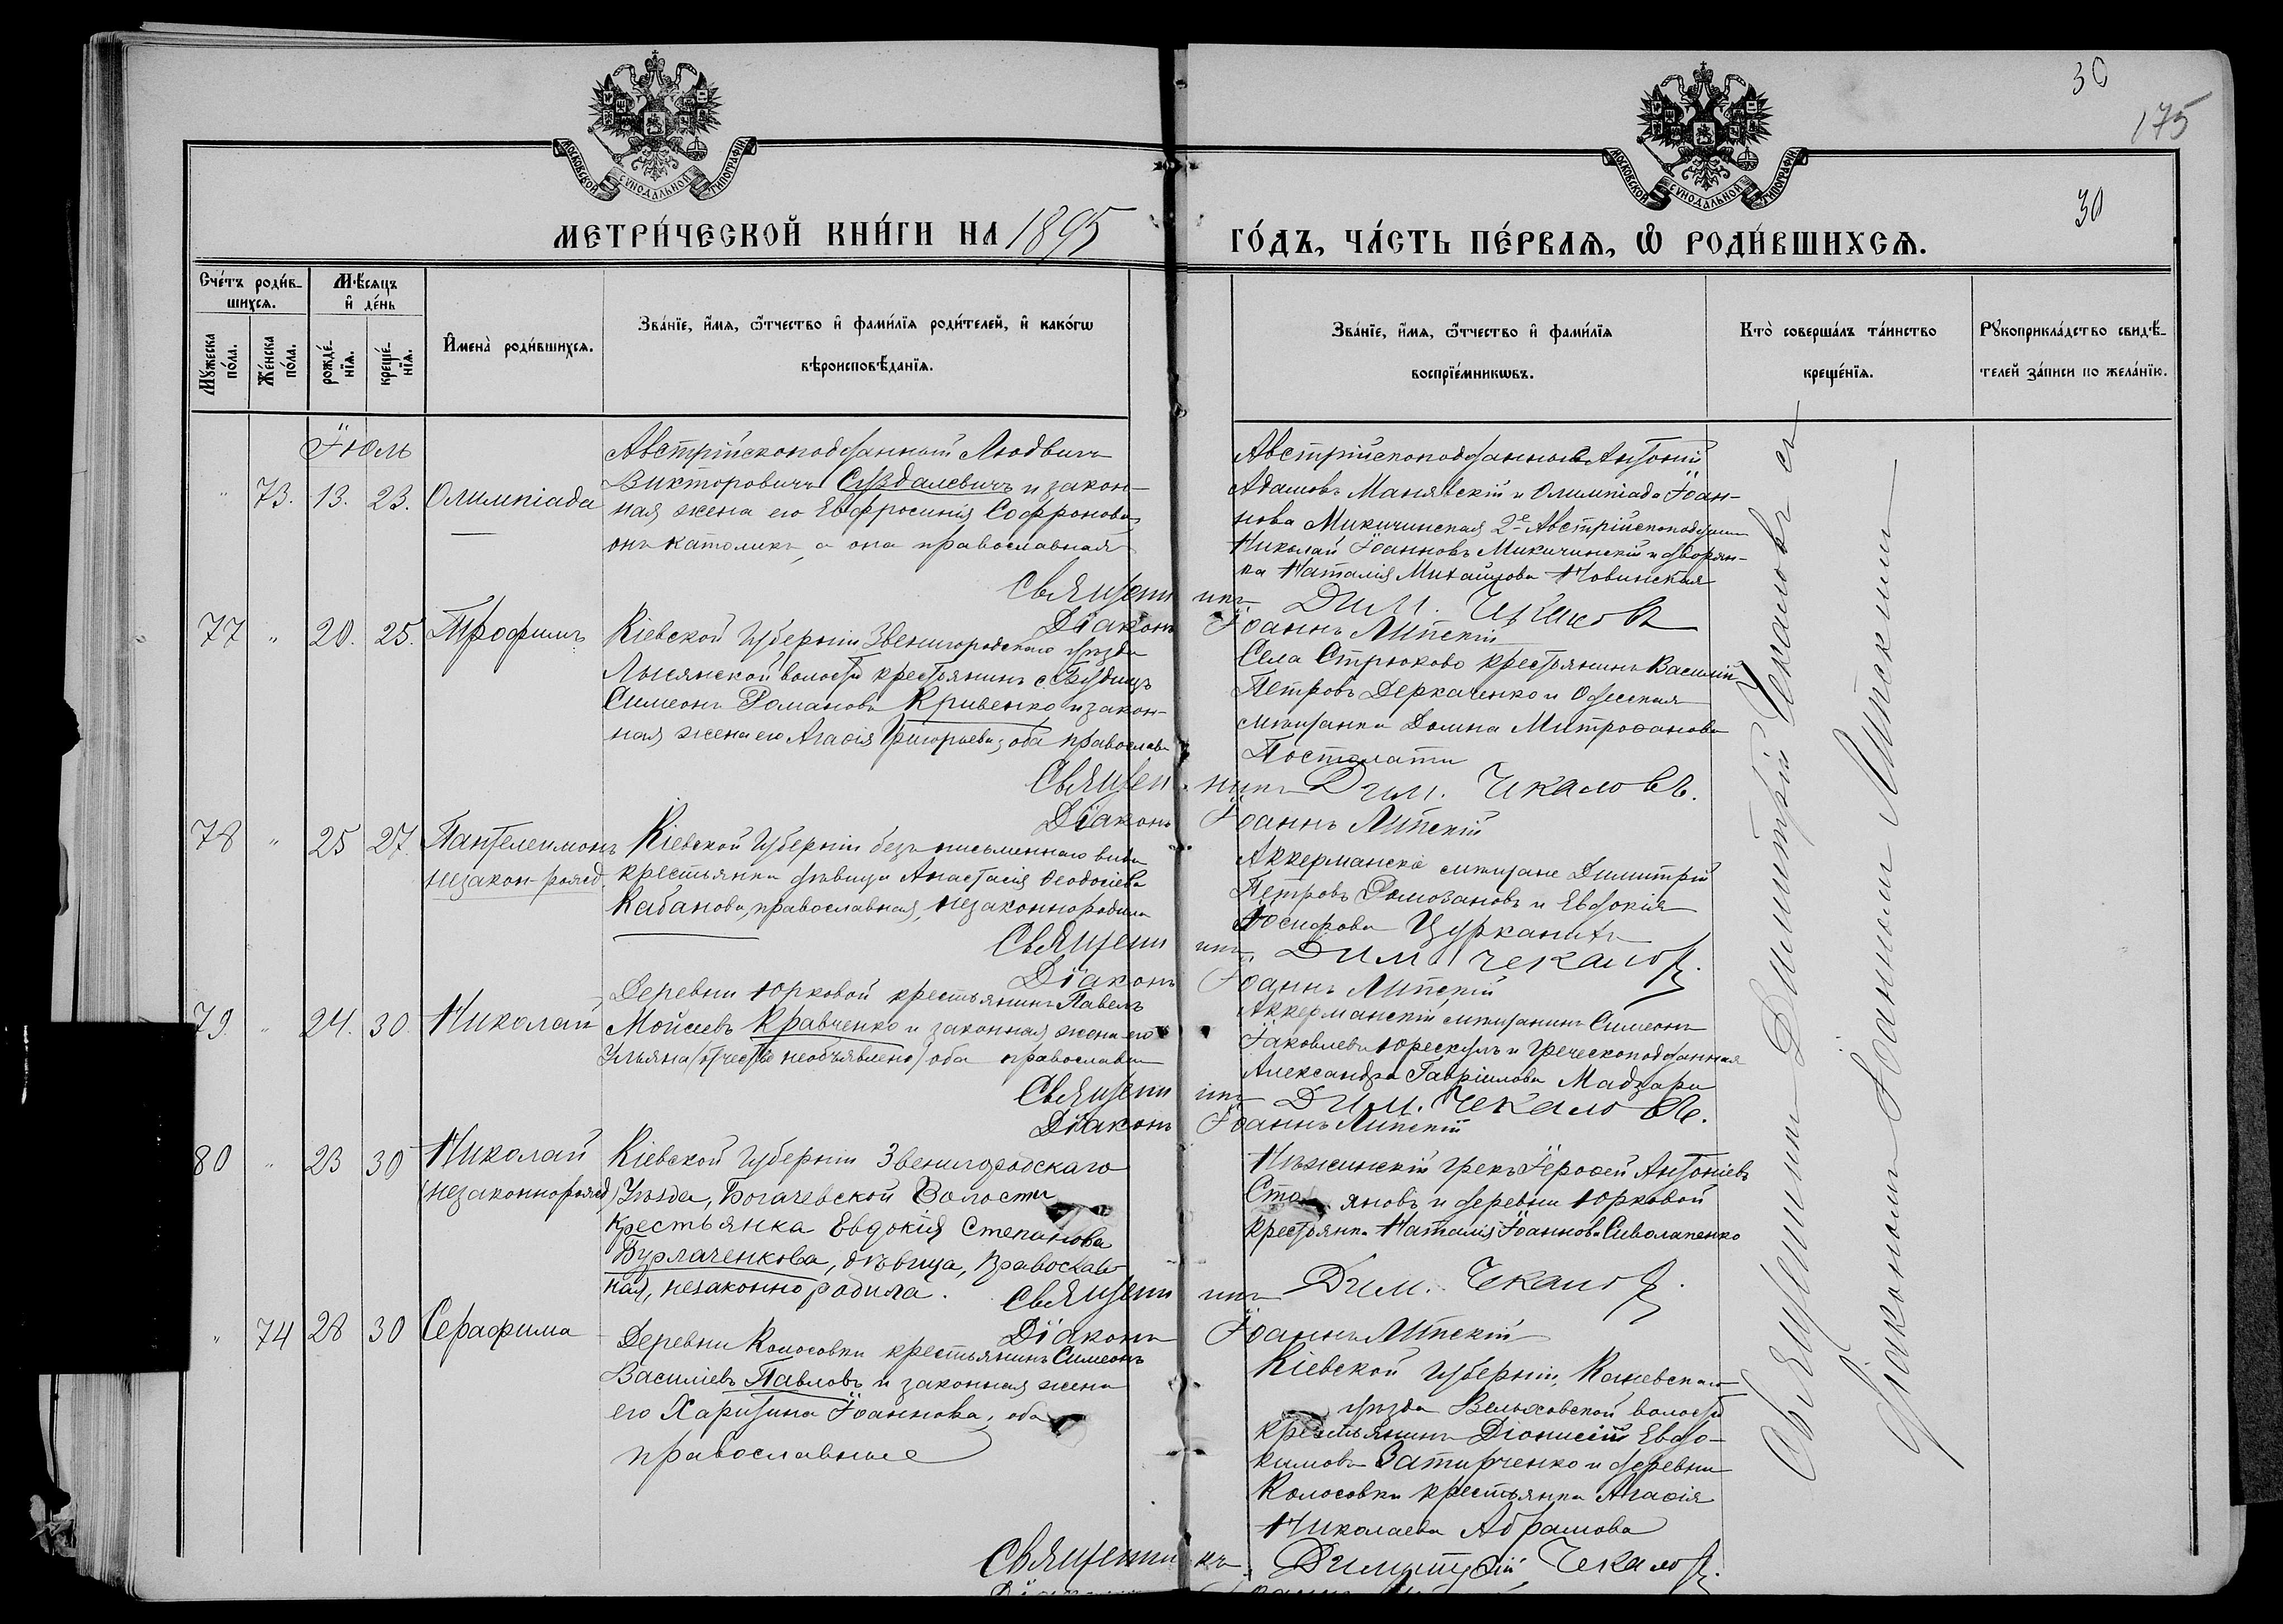 30
175
30
МОСКОВСКОЙ СѴНОДАЛЬНОЙ ТИПОГРАФІИ
МОСКОВСКОЙ СѴНОДАЛЬНОЙ ТИПОГРАФІИ
МЕТРИ́ЧЕСКОЙ КНИ́ГИ НА 1895
ГО́ДЪ, ЧА́СТЬ ПЕ́РВАѦ, Ѡ РОДИ́ВШИХСѦ.
Сче́тъ роди́в-
шихсѧ.
Мꙋжеска по́ла.
Же́нска по́ла.
Мѣ́сѧцъ
и҆ де́нь
рожде́-
нїѧ.
креще́-
нїѧ.
И҆мена̀ роди́вшихсѧ.
Зва́нїе, и҆́мѧ, ѻ҆́тчество и҆ фами́лїѧ роди́телей, и҆ како́гѡ
вѣроисповѣ́данїѧ.
Зва́нїе, и҆́мѧ, ѻ҆́тчество и҆ фами́лїѧ
воспрїе́мникѡвъ.
Кто̀ соверша́лъ та́инство
креще́нїѧ.
Рꙋкоприкла́дство свидѣ́-
телей за́писи по жела́нїю.
Іюль
" 73. 13. 23. Олимпіада
Австрійскоподданный Людвигъ
Викторовичъ Суздалевичъ и закон-
ная жена его Евфросинія Софронова,
онъ католикъ, а она православная
Австрійскоподданные Антоній
Адамовъ Манявскій и Олимпіада Іоан-
нова Микичинская 2е Австрійскоподдан
Николай Іоанновъ Микичинскій и дворян-
ка Наталія Михайлова Новинская
Священникъ Дим. Чекаловъ
Діаконъ Іоаннъ Липскій
77 " 20. 25. Трофимъ
Кіевской губерніи Звенигородскаго уѣзда
Лысянской волости крестьянинъ с. Будищъ
Симеонъ Романовъ Кривенко и закон-
ная жена его Агафія Григорьева, оба православн
Села Стрюково крестьянинъ Василій
Петровъ Деркаченко и Одесская
мѣщанка Домна Митрофанова
Постолати
Священникъ Дим. Чекаловъ.
Діаконъ Іоаннъ Липскій
78 " 25 27. Пантелеимонъ
незакон-рожд.
Кіевской губерніи безъ письменнаго вида
крестьянка дѣвица Анастасія Ѳеодосіева
Кабанова, православная, незаконнородила
Аккерманскіе мѣщане Димитрій
Петровъ Ромозановъ и Евдокія
Іосифова Цурканъ
Священникъ Дим. Чекаловъ.
Діаконъ Іоаннъ Липскій
79 " 24. 30. Николай
Деревни Юрковой крестьянинъ Павелъ
Мойсеевъ Кравченко и законная жена его
Ульяна (отчество необъявлено) оба православн
Аккерманскій мѣщанинъ Симеонъ
Іаковлевъ Юрескулъ и Греческоподданная
Александра Гавріилова Мадзари
Священникъ Дим. Чекаловъ.
Діаконъ Іоаннъ Липскій
80 " 23 30 Николай
(незаконнорожд)
Кіевской губерніи Звенигородскаго
Уѣзда, Богачевской Волости
крестьянка Евдокія Степанова
Бурлаченкова, дѣвица, православ
ная, незаконно родила.
Нѣжинскій грекъ Іероѳей Антоніевъ
Стояновъ и деревни Юрковой
крестьянка Наталія Іоаннова Сиволапенко
Священникъ Дим. Чекаловъ.
Діаконъ Іоаннъ Липскій
" 74 28 30 Серафима
Деревни Колосовки крестьянинъ Симеонъ
Василіевъ Павловъ и законная жена
его Харитина Іоаннова, оба
православные
Кіевской губерніи, Каневскаго
уѣзда волости
крестьянинъ Діонисій Евдо-
кимовъ и деревни
Колосовки крестьянка Агафія
Николаева Абрамова
Священникъ Димитрій Чекаловъ.
Священникъ Димитрій Чекаловъ съ
Діакономъ Іоанномъ Липскимъ